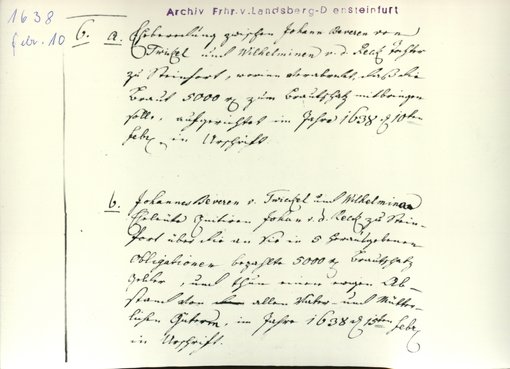 Archiv Frhr.v.Landsberg-Drensteinfurt
1638
febr. 10
6. a. Eheberedung zwischen Johann Beveren von
Twickel und Wilhelminen v. d. Reck Tochter
zu Steinfort, worin verabredet, daß die
Braut 5000 zum Brautschatz mitbringen
solle, aufgerichtet im Jahre 1638 d 10ten
febr. in Urschrift.
b. Johannes Beveren v. Twickel und Wilhelmina
Eheleute quitiren Johan v. d. Reck zu Stein-
fort über die an sie in 5 herausgegebenen
Obligationen bezahlte 5000 Brautschatz
Gelder, und thun einen ewigen Ab-
stand von allen Vater- und Mütter-
lichen Gütern, im Jahre 1638 d 15ten febr
in Urschrift.